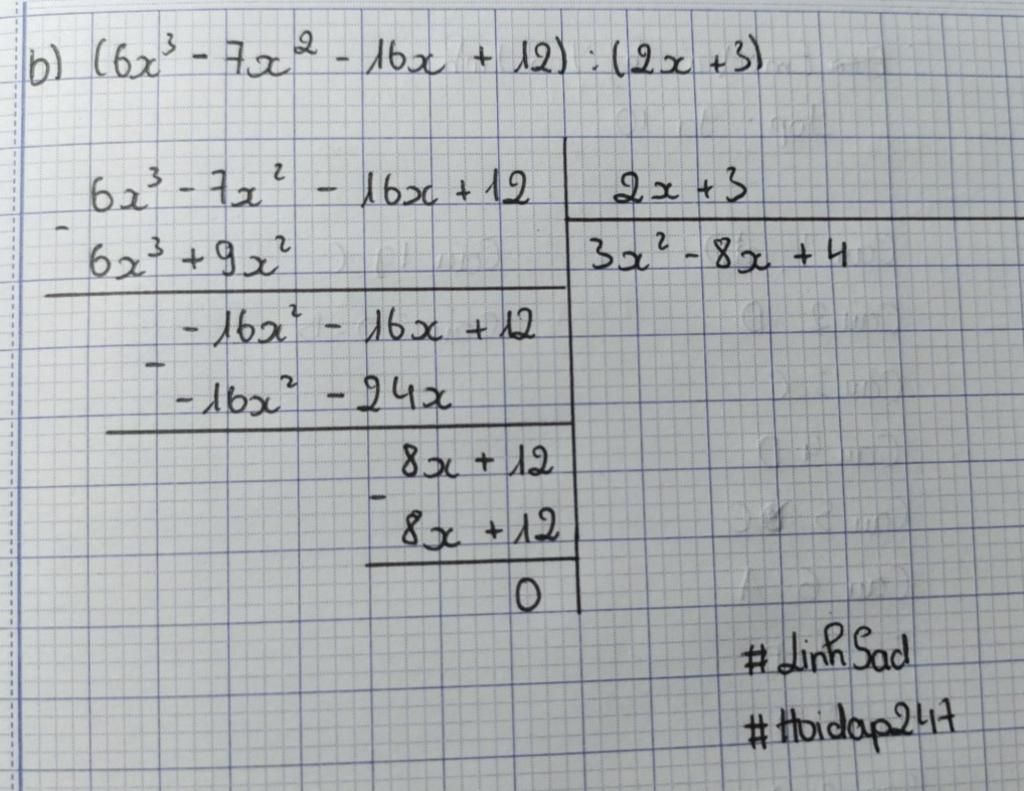 b) (6x³ - 7x² - 16x + 12) : (2x + 3)
6x³ - 7x² - 16x + 12 | 2x + 3
-
6x³ + 9x² | 3x² - 8x + 4
- 16x² - 16x + 12
-
- 16x² - 24x
8x + 12
-
8x + 12
0
# LinhSad
# Hoidap247